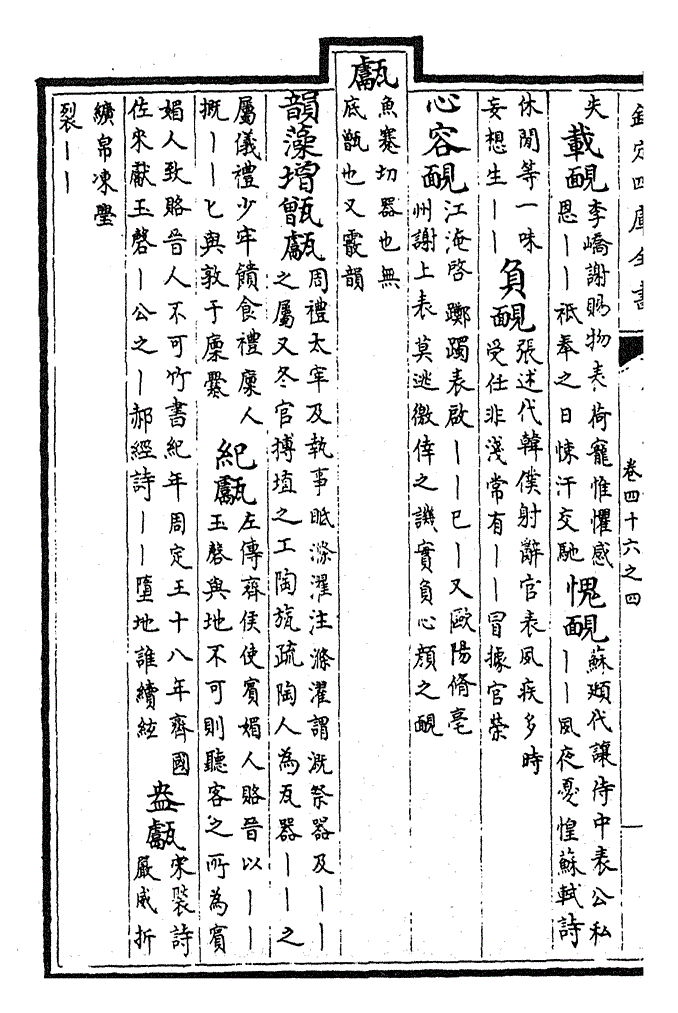 欽定四庫全書 卷四十六之四
失 載靦 李嶠謝賜物表荷寵惟懼感恩丨丨祇奉之日悚汗交馳 愧靦 蘇頲代讓侍中表公私丨丨夙夜憂惶蘇軾詩
休閒等一味妄想生丨丨 負靦 張述代韓僕射辭官表風疾多時受任非淺常有丨丨冒據官榮
心容靦 江淹啓躑躅表啟丨丨巳丨又歐陽脩亳州謝上表莫逃徼倖之譏實負心顏之靦
甗 魚蹇切器也無底甑也又霰韻
韻藻增甑甗 周禮太宰及執事眡滌濯注滌濯謂溉祭器及丨丨之屬又冬官摶埴之工陶旊疏陶人為瓦器丨丨之
屬儀禮少牢饋食禮廩人摡丨丨匕與敦于廩爨 紀甗 左傳齊侯使賓媚人賂晉以丨丨玉磬與地不可則聽客之所為賓
媚人致賂晉人不可竹書紀年周定王十八年齊國佐來獻玉磬丨公之丨郝經詩丨丨墮地誰續絃 盎甗 宋褧詩嚴威折
纊帛凍璺裂丨丨